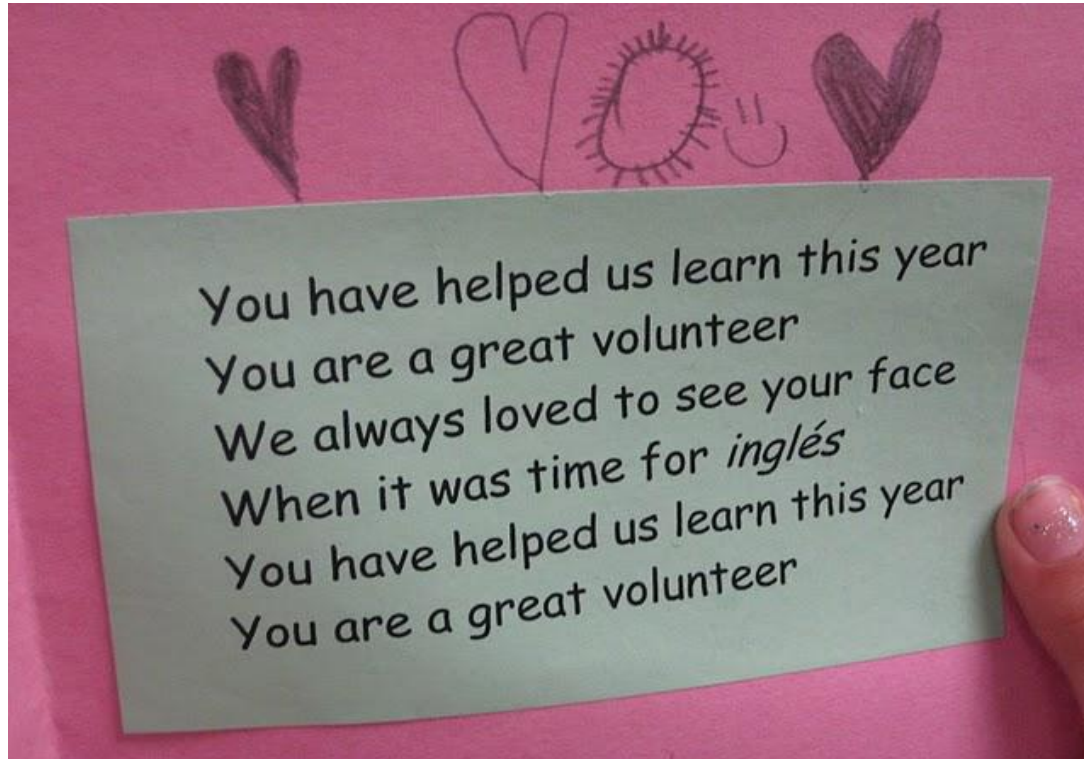 You have helped us learn this year
You are a great volunteer
We always loved to see your face
When it was time for inglés
You have helped us learn this year
You are a great volunteer